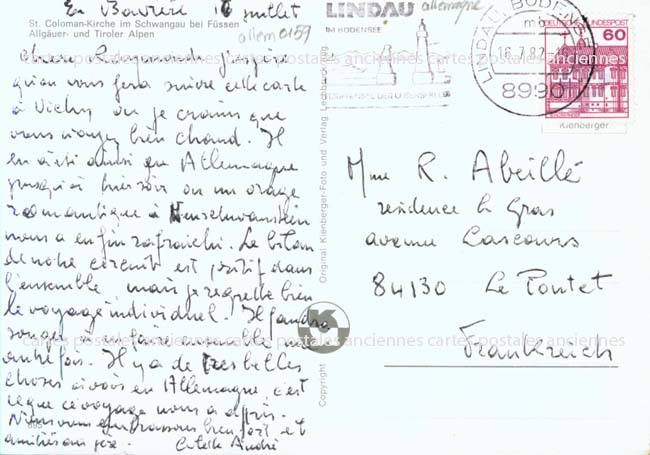 En Bavière 16 juillet
St. Coloman-Kirche im Schwangau bei Füssen
Allgäuer- und Tiroler Alpen
allem 0159
allemagne
LINDAU
IM BODENSEE
LINDAU, BODENSEE
16.7.82
8990
DEUTSCHE BUNDESPOST
60
Kienberger
Chère Raymonde j'espère
qu'on vous fera suivre cette carte
à Vichy où je crains que
vous n'ayez bien chaud. Il
en a été ainsi en Allemagne
jusqu'à hier soir où un orage
romantique à Neuschwanstein
nous a enfin rafraichi. Le bilan
de notre circuit est positif dans
l'ensemble mais je regrette bien
le voyage individuel. Il faudra
songer à le faire
autrefois. Il y a de très belles
choses à voir en Allemagne, c'est
ce que ce voyage nous a appris.
Nous vous embrassons bien fort et
amitiés
André
Mme R. Abeillé
résidence le Gras
avenue Lascours
84130 Le Pontet
Frankreich
Original Kienberger-Foto und Verlag Lechbruck
Copyright
K
cartes postales anciennes cartes postales anciennes cartes postales anciennes